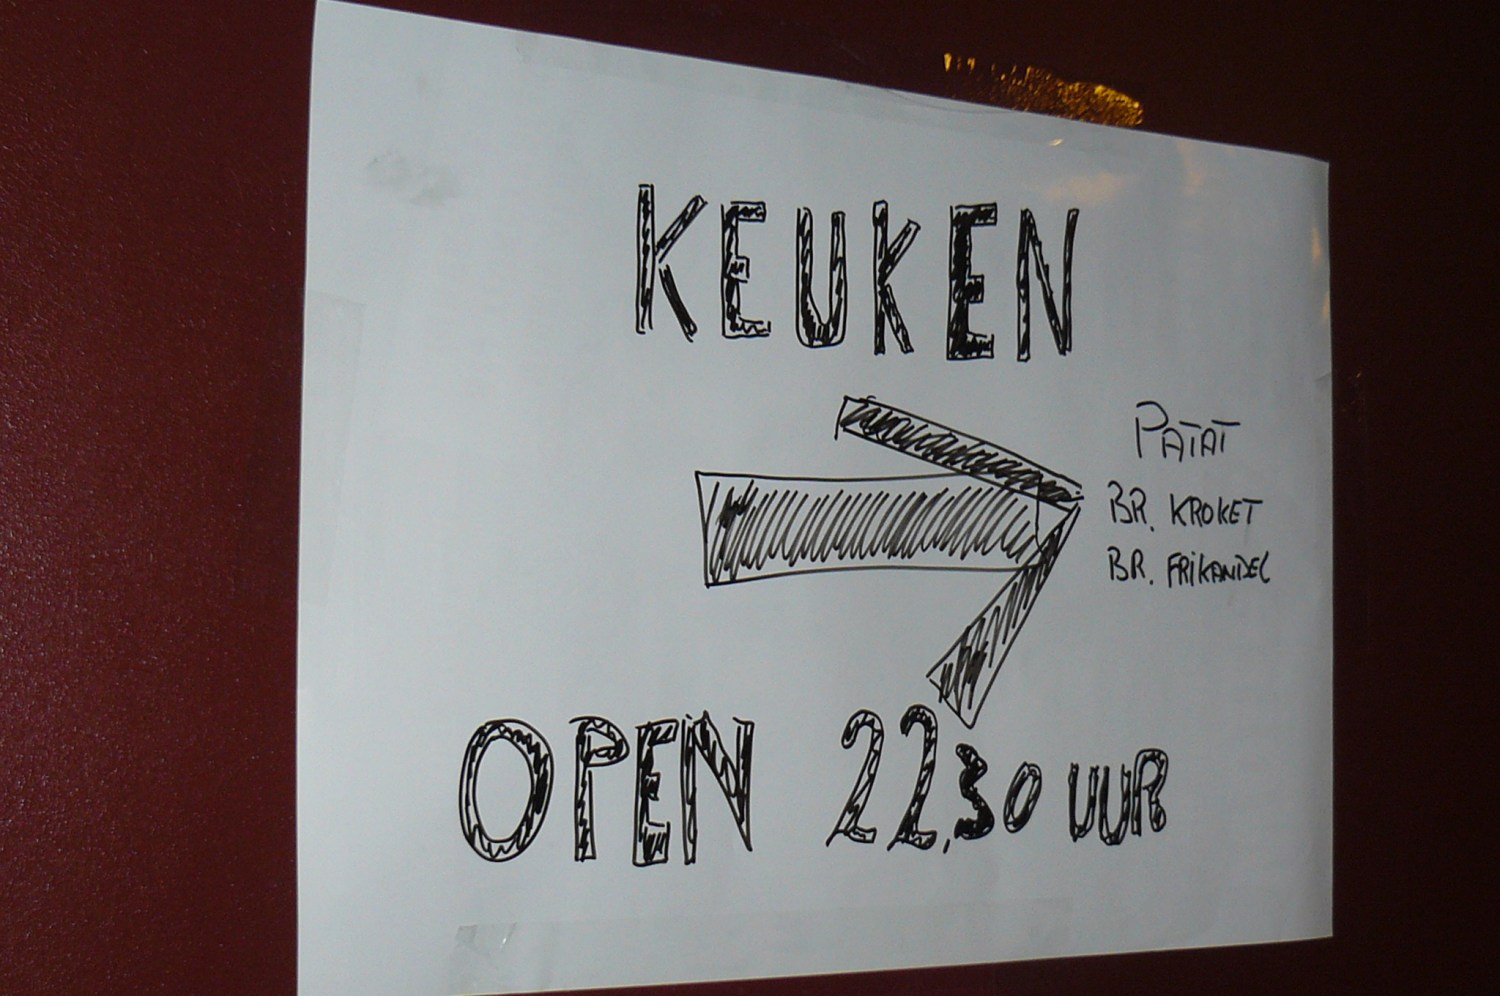 KEUKEN
PATAT
BR. KROKET
BR. FRIKANDEL
OPEN 22.30 UUR